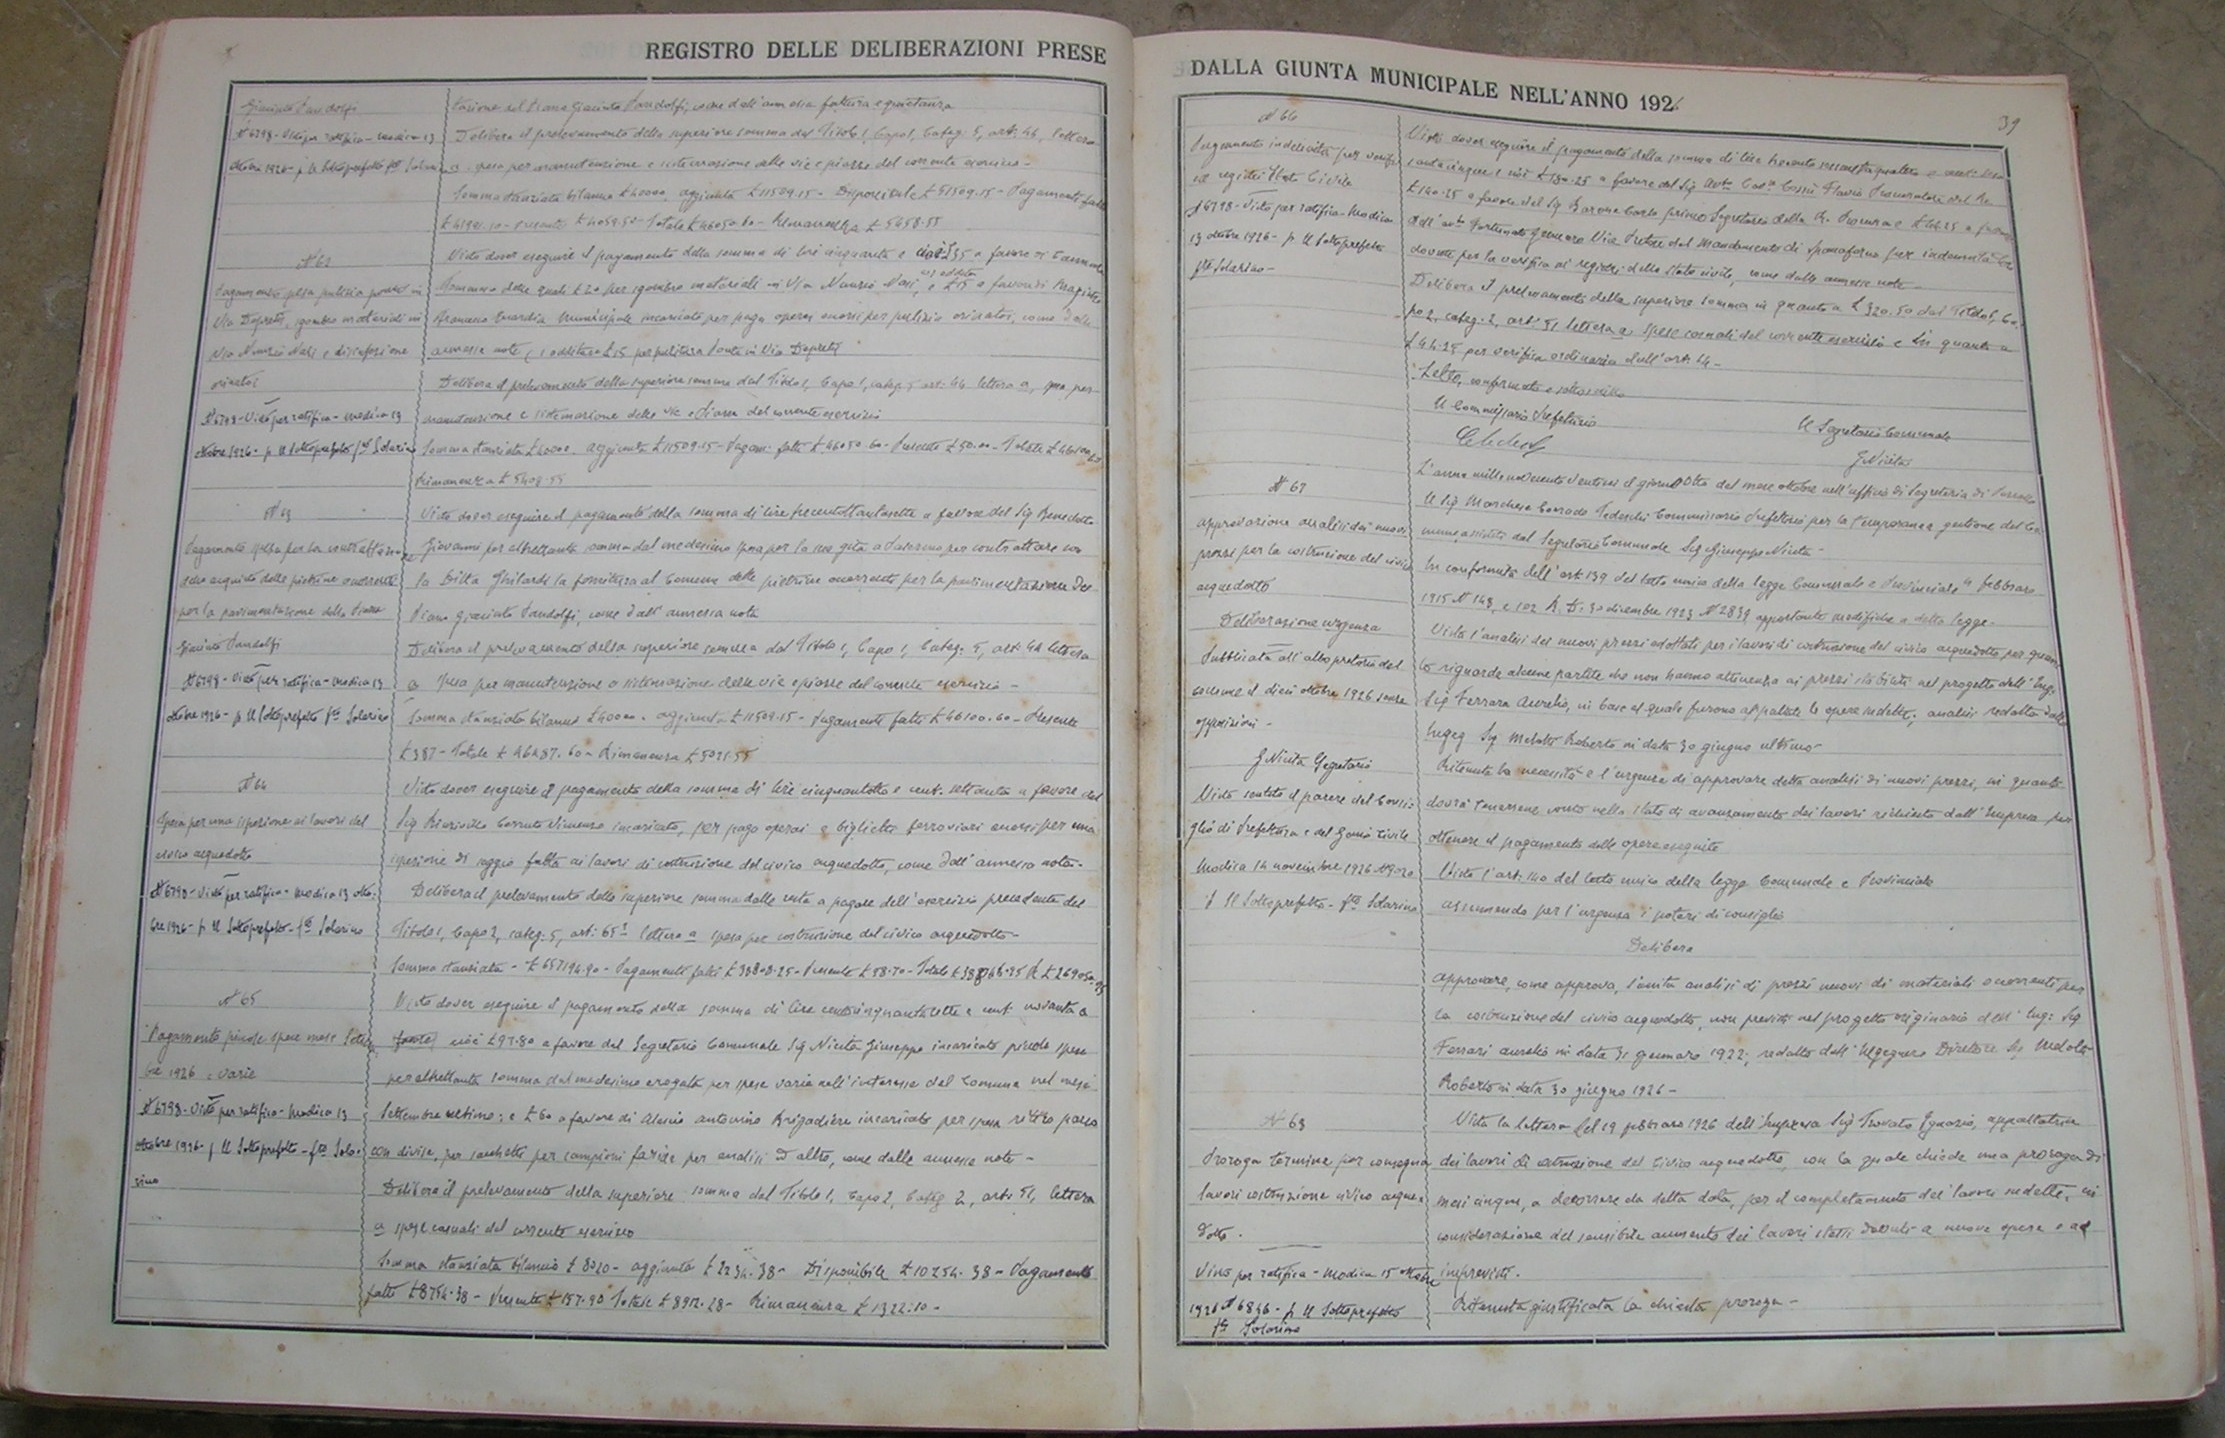 REGISTRO DELLE DELIBERAZIONI PRESE
Giacinto Pandolfi
N 6798 - Visto per ratifica - Modica 13
ottobre 1926 - p. Il Sottoprefetto fto Solarino
tazione del piano Giacinto Pandolfi, come dall'annessa fattura e quietanza
Delibera il prelevamento della superiore somma dal Titolo 1, Capo 1, Categ: 5, art: 44, lettera
a spesa per manutenzione e sistemazione delle vie e piazze del corrente esercizio -
Somma stanziata bilancio £ 40000, aggiunta £ 11509.15 - Disponibile £ 51509.15 - Pagamenti fatti
Totale £ 46050.60 - Rimanenza £ 5458.55
N 62
Pagamento spesa pulizia
Via Depretis, sgombro materiali in
Via Nunzio Nasi e disinfezione
orinatoi
N 6798 - Visto per ratifica - Modica 13
ottobre 1926 - p. Il Sottoprefetto fto Solarino
Visto dover eseguire il pagamento della somma di lire cinquanta e cioè £ 35 a favore di
Romano delle quali £ 20 per sgombro materiali in Via Nunzio Nasi, e £ 15 a favore di
Guardia Municipale incaricato per paga operai occorsi per pulizia orinatoi, come dalle
annesse note
Delibera il prelevamento della superiore somma dal Titolo 1, Capo 1, categ. 5 art: 44 lettera a, spesa per
manutenzione e sistemazione delle vie e piazze del corrente esercizio
Somma stanziata £ 40000 - aggiunta £ 11509.15 - Pagam: fatti £ 46050.60 - Presente £ 50.00 - Totale £ 46100.60
Rimanenza £ 5408.55
N 63
Pagamento spesa per la contrattazione
dello acquisto delle pietrine occorrenti
per la pavimentazione della Piazza
Giacinto Pandolfi
N 6798 - Visto per ratifica - Modica 13
ottobre 1926 - p. Il Sottoprefetto fto Solarino
Visto dover eseguire il pagamento della somma di lire trecentottantasette a favore del Sig Benedetto
Giovanni per altrettanta somma dal medesimo spesa per la sua gita a Palermo per contrattare con
la Ditta Ghilardi la fornitura al Comune delle pietrine occorrenti per la pavimentazione del
Piano Giacinto Pandolfi, come dall'annessa nota
Delibera il prelevamento della superiore somma dal Titolo 1, Capo 1, Categ: 5, art: 44 lettera
a spesa per manutenzione e sistemazione delle vie e piazze del corrente esercizio -
Somma stanziata bilancio £ 40000. aggiunta £ 11509.15 - Pagamenti fatti £ 46100.60 - Presente
£ 387 - Totale £ 46487.60 - Rimanenza £ 5021.55
N 64
Spesa per una ispezione ai lavori del
civico acquedotto
N 6798 - Visto per ratifica - Modica 13 otto-
bre 1926 - p. Il Sottoprefetto - fto Solarino
Visto dover eseguire il pagamento della somma di lire cinquantotto e cent. settanta a favore del
Sig Vincenzo incaricato, per pago operai e biglietto ferroviari occorsi per una
ispezione di saggio fatta ai lavori di costruzione del civico acquedotto, come dall'annessa nota -
Delibera il prelevamento della superiore somma dalle resta a pagare dell'esercizio precedente del
Titolo 1, Capo 2, categ: 5, art: 65 1 lettera a spesa per costruzione del civico acquedotto -
Somma stanziata - £ 657194.90 - Pagamenti fatti - Presente £ 58.70 - Totale
N 65
Pagamento piccole spese mese Settem
bre 1926 e varie
N 6798 - Visto per ratifica - Modica 13
ottobre 1926 - p Il Sottoprefetto - fto Sola-
rino
Visto dover eseguire il pagamento della somma di lire centocinquantasette e cent. novanta a
favore cioè £ 97.80 a favore del Segretario Comunale Sig Niuta Giuseppe incaricato piccole spese
per altrettanta somma dal medesimo erogata per spese varie nell'interesse del Comune nel mese
Settembre ultimo; e £ 60 a favore di Alecio Antonino Brigadiere incaricato per spesa ritiro pacco
con divise, per sacchetti per campioni farine per analisi ed altro, come dalle annesse note -
Delibera il prelevamento della superiore somma dal Titolo 1, Capo 2, Categ 2, art: 51, lettera
a spese casuali del corrente esercizio
Somma stanziata bilancio £ 8020 - aggiunta £ 2234.38 - Disponibile £ 10254.38 - Pagamenti
fatti £ 8754.38 - Presente £ 157.90 Totale £ 8912.28 - Rimanenza £ 1322.10 -
DALLA GIUNTA MUNICIPALE NELL'ANNO 1926
39
N 66
Pagamento indennità per verifi
ca registri Stato Civile
N 6798 - Visto per ratifica - Modica
13 ottobre 1926 - p. Il Sottoprefetto
fto Solarino -
Visto dover eseguire il pagamento della somma di lire trecento sessantaquattro e cent: set
tantacinque e cioè £ 180.25 a favore del Sig Avto Cava Flavio Procuratore del Re
£ 140.25 a favore del Sig Barone Carlo primo Segretario della R. Procura e £ 44.25 a favore
dell'avto Fortunato Gennaro Vice Pretore del Mandamento di Spaccaforno per indennità loro
dovute per la verifica ai registri dello stato civile, come dalle annesse note -
Delibera il prelevamento della superiore somma in quanto a £ 320.50 dal Titolo 1, Ca-
po 2, categ. 2, art: 51 lettera a spese casuali del corrente esercizio e in quanto a
£ 44.25 per verifica ordinaria dall'art: 14 -
Letto, confermato e sottoscritto
Il Commissario Prefettizio
Il Segretario Comunale
G Niuta
N 67
approvazione analisi dei nuovi
prezzi per la costruzione del civico
acquedotto
Deliberazione urgenza
Pubblicata all'albo pretorio del
comune il dieci ottobre 1926 senza
opposizioni -
G Niuta Segretario
Visto sentito il parere del Consi-
glio di Prefettura e del Genio Civile
Modica 14 novembre 1926
p Il Sottoprefetto - fto Solarino
L'anno millenovecentoventisei il giorno otto del mese ottobre nell'ufficio di Segreteria di
Il Sig Marchese Corrado Tedeschi Commissario Prefettizio per la temporanea gestione del Co-
mune, assistito dal Segretario Comunale Sig Giuseppe Niuta -
In conformità dell'art: 139 del testo unico della legge Comunale e Provinciale 4 febbraro
1915 N 148, e 102 R. D. 30 dicembre 1923 N 2839 apportante modifiche a detta legge -
Vista l'analisi dei nuovi prezzi adottati per i lavori di costruzione del civico acquedotto per quan
to riguarda alcune partite che non hanno attinenza ai prezzi stabiliti nel progetto dell'Ing:
Sig Ferrara Aurelio, in base al quale furono appaltate le opere sudette; analisi redatta dallo
Ingeg Sig Roberto in data 30 giugno ultimo -
Ritenuta la necessità e l'urgenza di approvare detta analisi di nuovi prezzi, in quanto
dovrà tenersene conto nello stato di avanzamento dei lavori richiesto dall'Impresa per
ottenere il pagamento delle opere eseguite
Visto l'art: 140 del testo unico della legge Comunale e Provinciale
assumendo per l'urgenza i poteri di consiglio
Delibera
approvare, come approva, l'unita analisi di prezzi nuovi di materiali occorrenti per
la costruzione del civico acquedotto, non previsti nel progetto originario dell'Ing: Sig
Ferrari Aurelio in data 31 gennaro 1922; redatto dall'Ingegnere Direttore Sig
Roberto in data 30 giugno 1926 -
N 68
Proroga termine per consegna
lavori costruzione civico acque-
dotto.
Visto per ratifica - Modica 15 ottobre
1926 N 6846 - p Il Sottoprefetto
fto Solarino
Vista la lettera del 19 febbraro 1926 dell'Impresa Sig Trovato Ignazio, appaltatrice
dei lavori di costruzione del Civico acquedotto, con la quale chiede una proroga di
mesi cinque, a decorrere da detta data, per il completamento dei lavori sudetti, in
considerazione del sensibile aumento dei lavori stessi dovuti a nuove opere e ad
imprevisti.
Ritenuta giustificata la chiesta proroga -